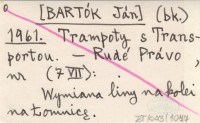 [BARTÓK Ján] (bk.)
1961. Trampoty s Trans-
portou. — Rudé Právo,
nr (7 VII):
Wymiana liny na kolei
na Łomnicę.